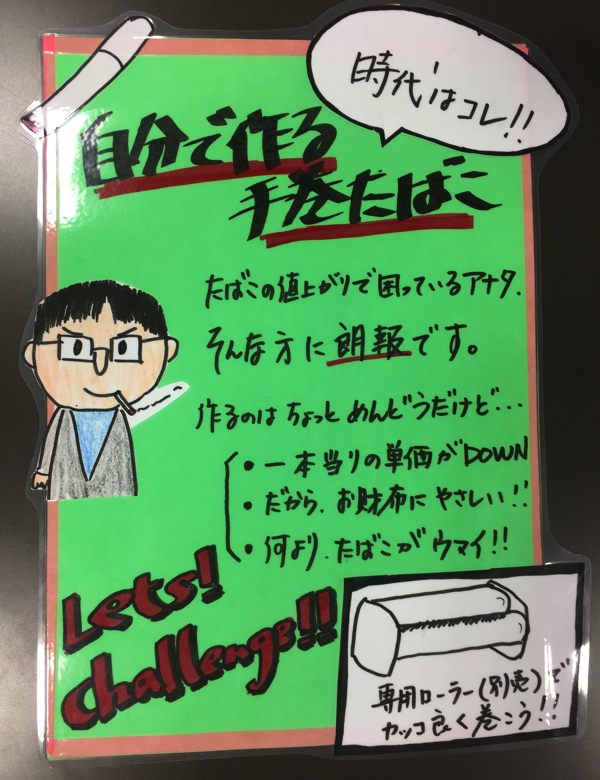 時代はコレ!!
自分で作る
手巻たばこ
たばこの値上がりで困っているアナタ.
そんな方に朗報です。
作るのはちょっとめんどうだけど...
・一本当りの単価がDOWN
・だから、お財布にやさしい!!
・何より、たばこがウマイ!!
Lets!
challenge!!
専用ローラー(別売)で
カッコ良く巻こう!!